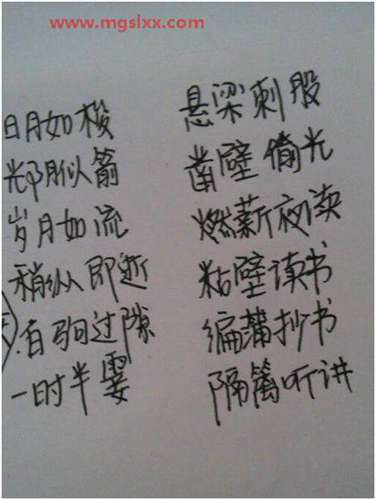 www.mgslxx.com
日月如梭
光阴似箭
岁月如流
稍纵即逝
白驹过隙
一时半霎
悬梁刺股
凿壁偷光
燃薪夜读
粘壁读书
编蒲抄书
隔篱听讲